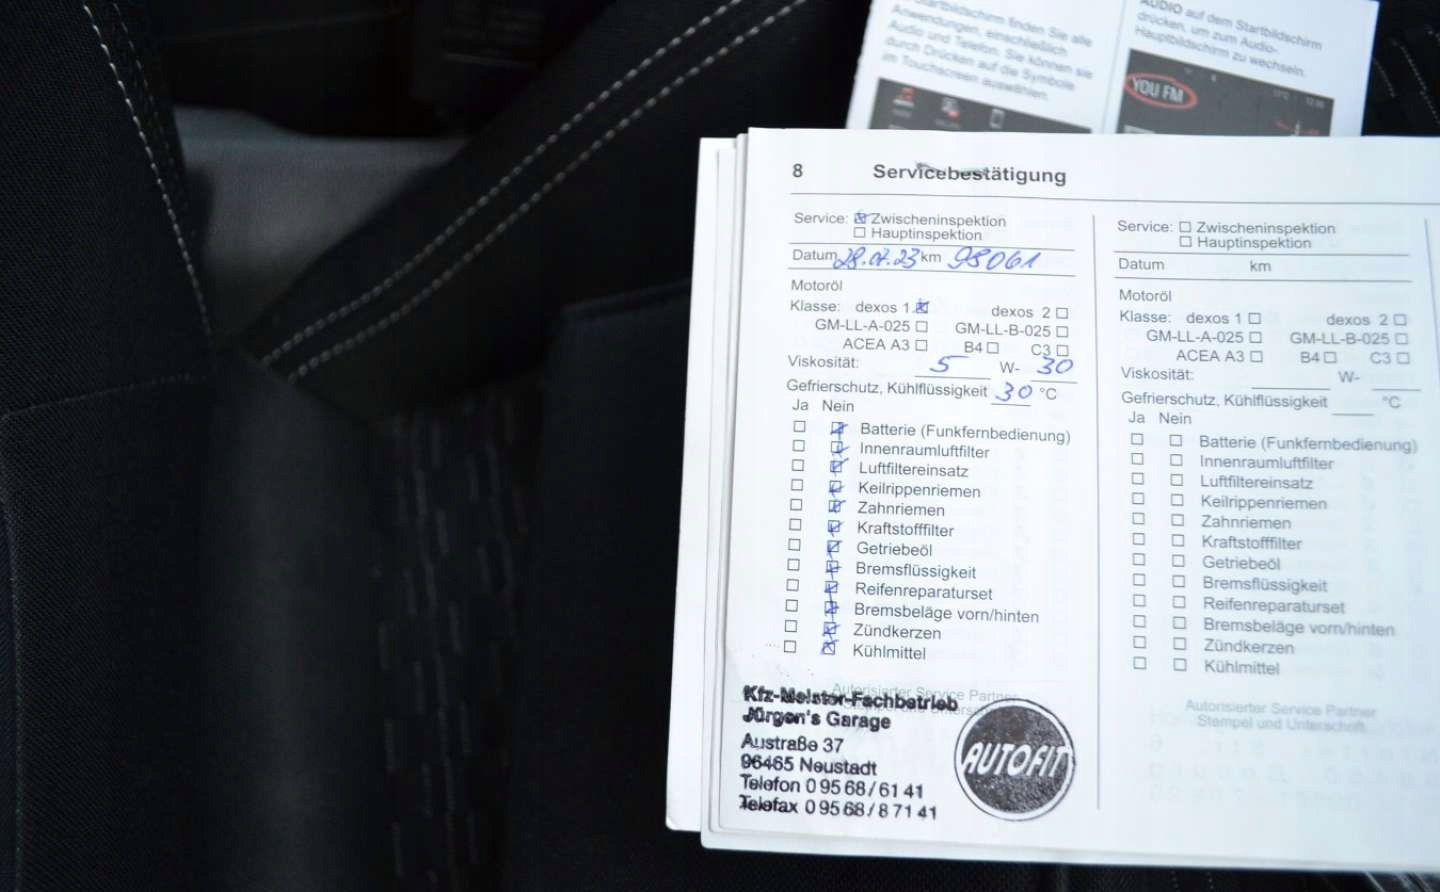 Startbildschirm finden Sie alle
Anwendungen, einschließlich
Audio und Telefon. Sie können sie
durch Drücken auf die Symbole
im Touchscreen auswählen.
AUDIO auf dem Startbildschirm
drücken, um zum Audio-
Hauptbildschirm zu wechseln.
YOU FM
8 Servicebestätigung
Service: ☒ Zwischeninspektion
☐ Hauptinspektion
Datum 28.07.23 km 98061
Motoröl
Klasse: dexos 1 ☒ dexos 2 ☐
GM-LL-A-025 ☐ GM-LL-B-025 ☐
ACEA A3 ☐ B4 ☐ C3 ☐
Viskosität: 5 W- 30
Gefrierschutz, Kühlflüssigkeit 30 °C
Ja Nein
☐ ☒ Batterie (Funkfernbedienung)
☐ ☒ Innenraumluftfilter
☐ ☒ Luftfiltereinsatz
☐ ☒ Keilrippenriemen
☐ ☒ Zahnriemen
☐ ☒ Kraftstofffilter
☐ ☒ Getriebeöl
☐ ☒ Bremsflüssigkeit
☐ ☒ Reifenreparaturset
☐ ☒ Bremsbeläge vorn/hinten
☐ ☒ Zündkerzen
☐ ☒ Kühlmittel
Autorisierter Service Partner
Kfz-Meister-Fachbetrieb
Jürgen's Garage
Austraße 37
96465 Neustadt
Telefon 0 95 68 / 61 41
Telefax 0 95 68 / 8 71 41
AUTOFIT
Service: ☐ Zwischeninspektion
☐ Hauptinspektion
Datum km
Motoröl
Klasse: dexos 1 ☐ dexos 2 ☐
GM-LL-A-025 ☐ GM-LL-B-025 ☐
ACEA A3 ☐ B4 ☐ C3 ☐
Viskosität: W-
Gefrierschutz, Kühlflüssigkeit °C
Ja Nein
☐ ☐ Batterie (Funkfernbedienung)
☐ ☐ Innenraumluftfilter
☐ ☐ Luftfiltereinsatz
☐ ☐ Keilrippenriemen
☐ ☐ Zahnriemen
☐ ☐ Kraftstofffilter
☐ ☐ Getriebeöl
☐ ☐ Bremsflüssigkeit
☐ ☐ Reifenreparaturset
☐ ☐ Bremsbeläge vorn/hinten
☐ ☐ Zündkerzen
☐ ☐ Kühlmittel
Autorisierter Service Partner
Stempel und Unterschrift